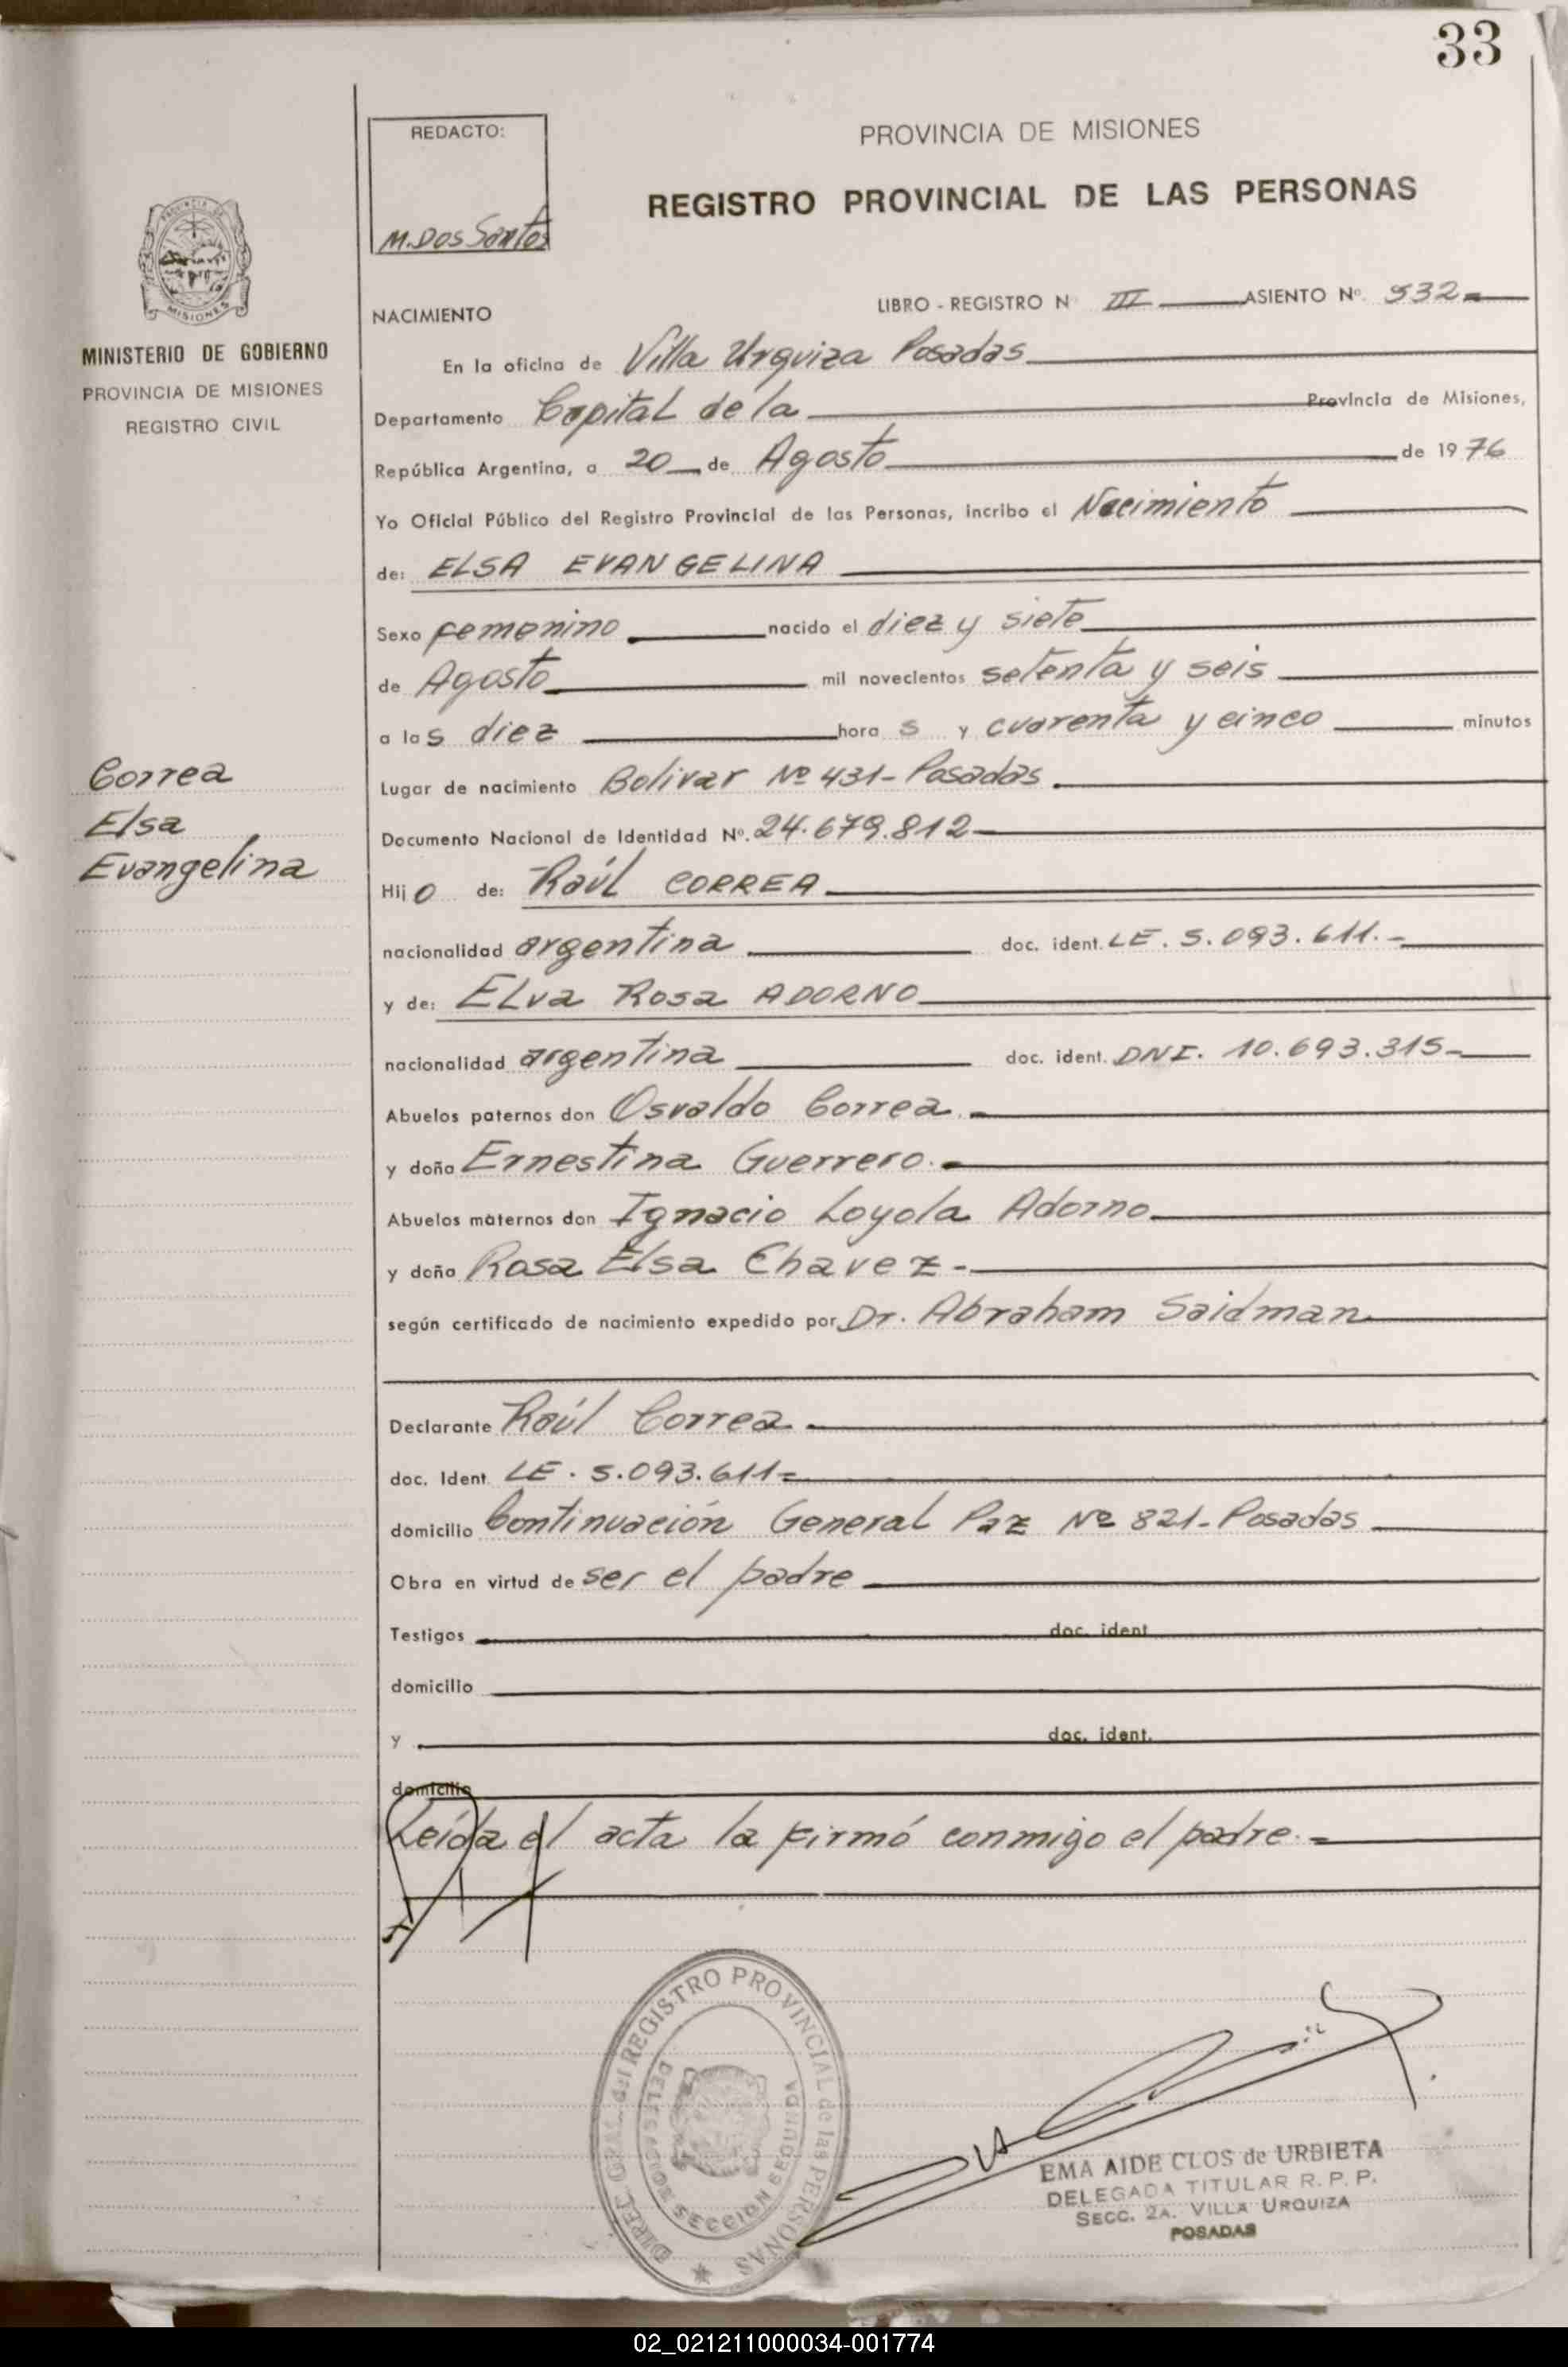 33
REDACTO:
M. Dos Santos
PROVINCIA DE MISIONES
REGISTRO PROVINCIAL DE LAS PERSONAS
MISIONES
MINISTERIO DE GOBIERNO
PROVINCIA DE MISIONES
REGISTRO CIVIL
NACIMIENTO
LIBRO - REGISTRO N III ASIENTO Nº 532
En la oficina de Villa Urquiza Posadas
Departamento Capital de la Provincia de Misiones,
República Argentina, a 20 de Agosto de 1976
Yo Oficial Público del Registro Provincial de las Personas, incribo el Nacimiento
de: ELSA EVANGELINA
Sexo femenino nacido el diez y siete
de Agosto mil novecientos setenta y seis
a las diez horas y cuarenta y cinco minutos
Correa
Elsa
Evangelina
Lugar de nacimiento Bolivar Nº 431- Posadas
Documento Nacional de Identidad Nº. 24.679.812
Hijo de: Raúl CORREA
nacionalidad argentina doc. ident. LE. 5.093.611.-
y de: Elva Rosa ADORNO
nacionalidad argentina doc. ident. DNI. 10.693.315-
Abuelos paternos don Osvaldo Correa
y doña Ernestina Guerrero.
Abuelos maternos don Ignacio Loyola Adorno
y doña Rosa Elsa Chavez-
según certificado de nacimiento expedido por Dr. Abraham Saidman
Declarante Raúl Correa
doc. Ident. LE. 5.093.611=
domicilio Continuación General Paz Nº 821- Posadas
Obra en virtud de ser el padre
Testigos doc. ident
domicilio
y doc. ident.
domicilio
Leída el acta la firmó conmigo el padre.=
DIREC. GRAL. del REGISTRO PROVINCIAL de las PERSONAS
DELEGACION SECCION SEGUNDA
EMA AIDE CLOS de URBIETA
DELEGADA TITULAR R. P. P.
SECC. 2A. VILLA URQUIZA
POSADAS
02_021211000034-001774